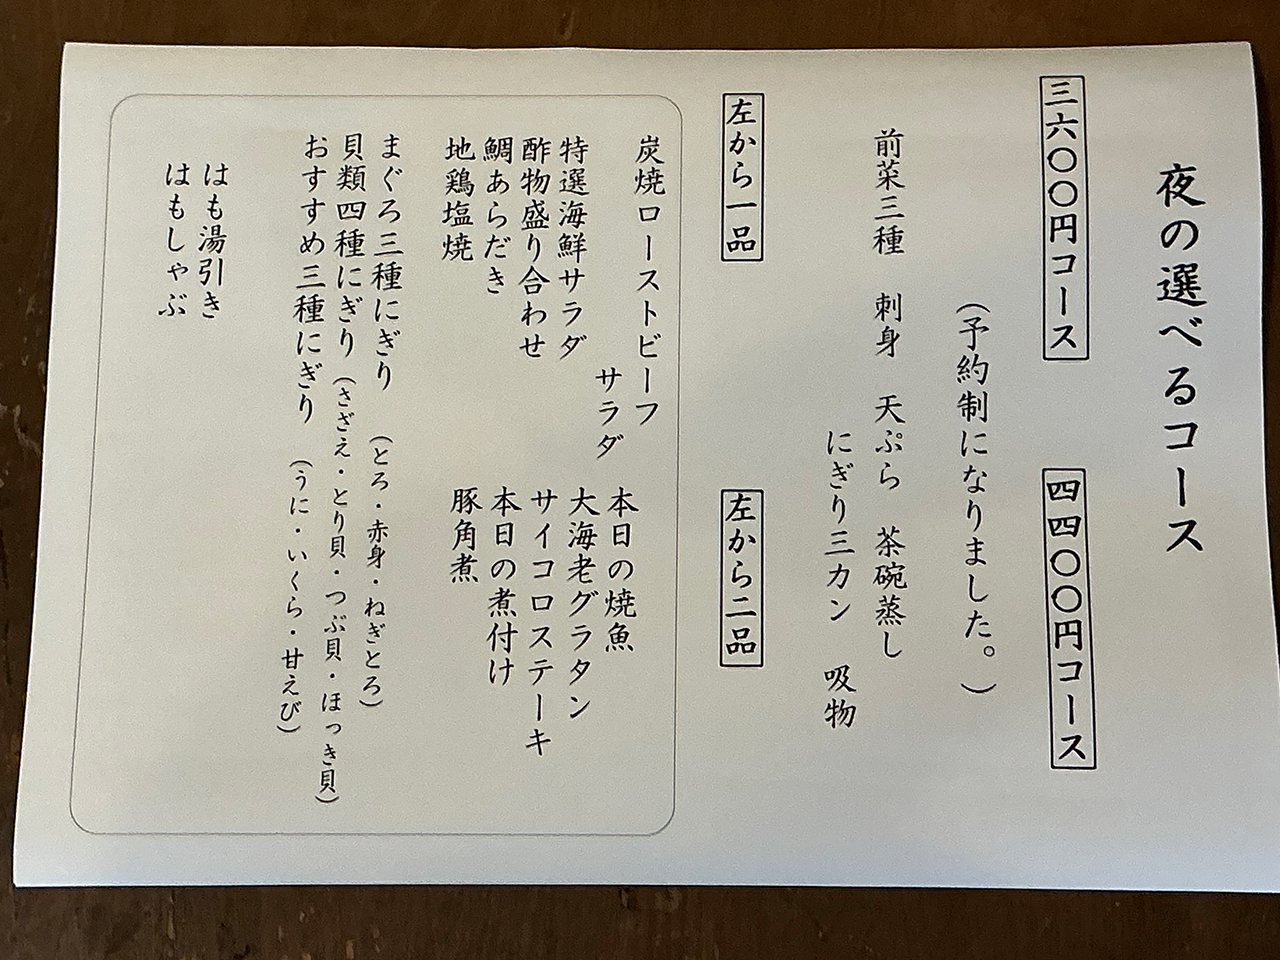 夜の選べるコース
三六〇〇円コース
四四〇〇円コース
（予約制になりました。）
前菜三種　刺身　天ぷら　茶碗蒸し
にぎり三カン　吸物
左から一品
左から二品
炭焼ローストビーフ
サラダ
特選海鮮サラダ
酢物盛り合わせ
鯛あらだき
地鶏塩焼
本日の焼魚
大海老グラタン
サイコロステーキ
本日の煮付け
豚角煮
まぐろ三種にぎり（とろ・赤身・ねぎとろ）
貝類四種にぎり（さざえ・とり貝・つぶ貝・ほっき貝）
おすすめ三種にぎり（うに・いくら・甘えび）
はも湯引き
はもしゃぶ